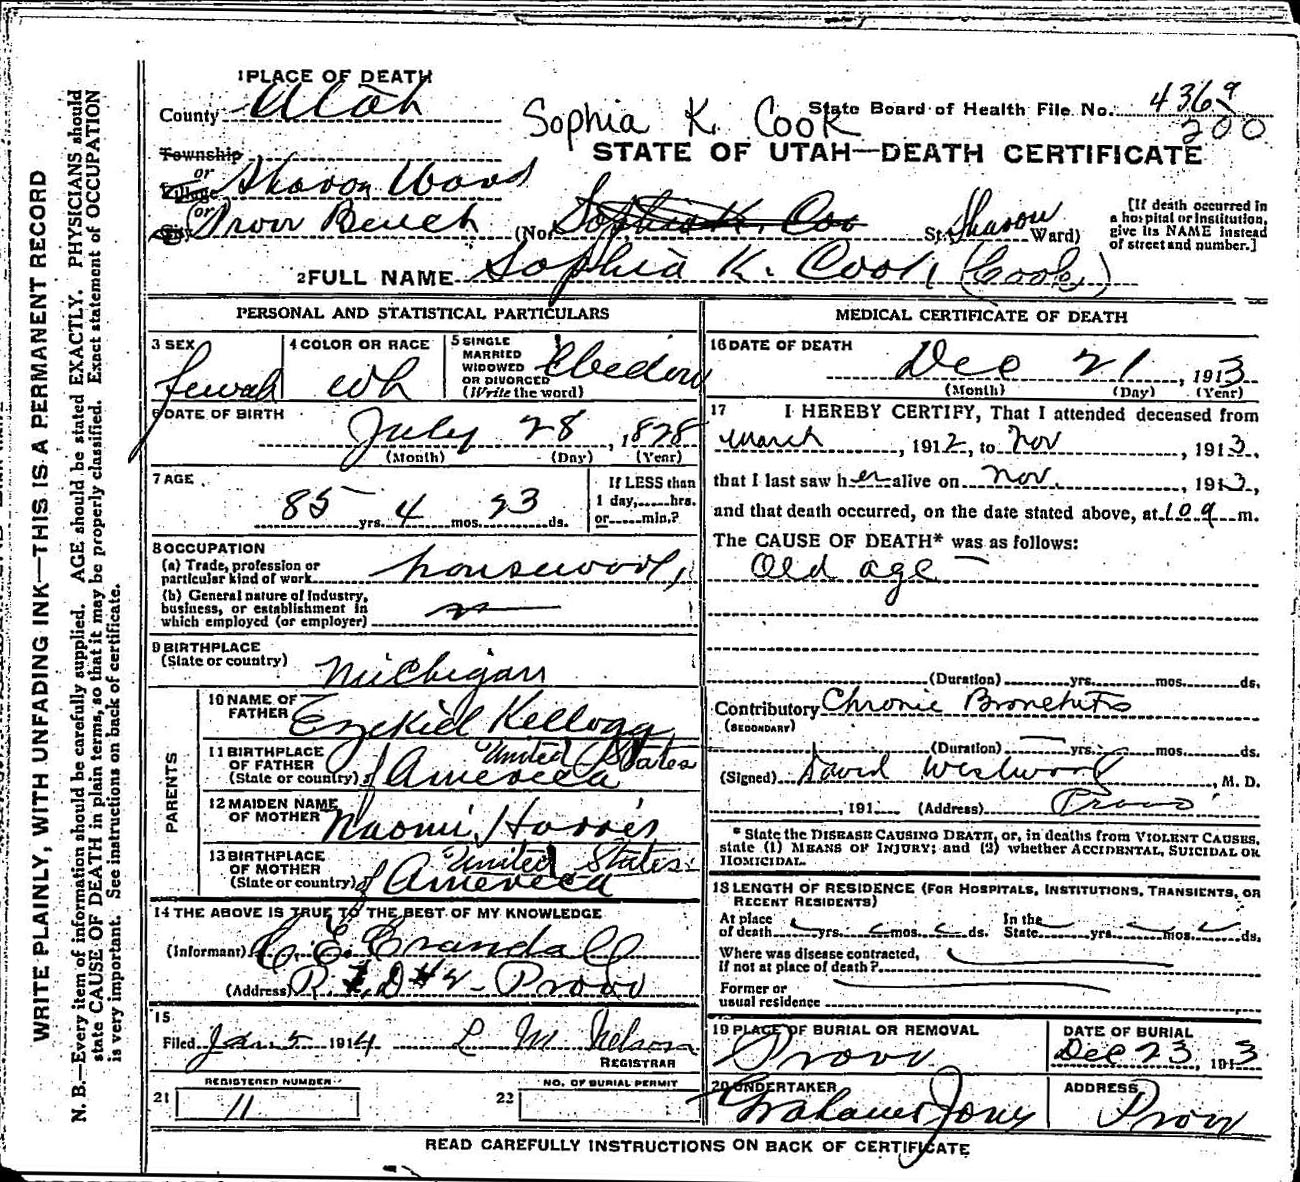 1 PLACE OF DEATH
County Utah
Sophia K. Cook
State Board of Health File No. 4369
200
Township
or
Village Sharon Ward
or
City Provo Bench
STATE OF UTAH—DEATH CERTIFICATE
(No. Sophia K. Coo St. Sharon Ward)
[If death occurred in
a hospital or institution,
give its NAME instead
of street and number.]
2 FULL NAME Sophia K. Cook (Cook)
WRITE PLAINLY, WITH UNFADING INK—THIS IS A PERMANENT RECORD
N. B.—Every item of information should be carefully supplied. AGE should be stated EXACTLY. PHYSICIANS should
state CAUSE OF DEATH in plain terms, so that it may be properly classified. Exact statement of OCCUPATION
is very important. See instructions on back of certificate.
PERSONAL AND STATISTICAL PARTICULARS
3 SEX
4 COLOR OR RACE
wh
5 SINGLE
MARRIED
WIDOWED
OR DIVORCED
(Write the word)
6 DATE OF BIRTH
July 28, 1828
(Month) (Day) (Year)
7 AGE
85 yrs. 4 mos. 23 ds.
If LESS than
1 day,......hrs.
or......min.?
8 OCCUPATION
(a) Trade, profession or
particular kind of work
(b) General nature of industry,
business, or establishment in
which employed (or employer)
9 BIRTHPLACE
(State or country) Michigan
PARENTS
10 NAME OF
FATHER Ezekiel Kellogg
11 BIRTHPLACE
OF FATHER
(State or country) United States of America
12 MAIDEN NAME
OF MOTHER Naomi Harris
13 BIRTHPLACE
OF MOTHER
(State or country) United States of America
14 THE ABOVE IS TRUE TO THE BEST OF MY KNOWLEDGE
(Informant) C. E. Crandall
(Address) R.F.D #2 Provo
15
Filed Jan 5 1914 L M Nelson
REGISTRAR
REGISTERED NUMBER
21 11
NO. OF BURIAL PERMIT
22
MEDICAL CERTIFICATE OF DEATH
16 DATE OF DEATH
Dec 21, 1913
(Month) (Day) (Year)
17 I HEREBY CERTIFY, That I attended deceased from
March, 1912, to Nov, 1913,
that I last saw her alive on Nov., 1913,
and that death occurred, on the date stated above, at m.
The CAUSE OF DEATH* was as follows:
Old age
(Duration)......yrs......mos......ds.
Contributory Chronic Bronchitis
(SECONDARY)
(Duration)......yrs......mos......ds.
(Signed) David Westwood, M. D.
, 191 (Address) Provo
* State the DISEASE CAUSING DEATH, or, in deaths from VIOLENT CAUSES,
state (1) MEANS OF INJURY; and (2) whether ACCIDENTAL, SUICIDAL OR
HOMICIDAL.
18 LENGTH OF RESIDENCE (FOR HOSPITALS, INSTITUTIONS, TRANSIENTS, OR
RECENT RESIDENTS)
At place
of death yrs. mos. ds.
In the
State yrs. mos. ds.
Where was disease contracted,
If not at place of death?
Former or
usual residence
19 PLACE OF BURIAL OR REMOVAL
Provo
DATE OF BURIAL
Dec 23, 1913
20 UNDERTAKER
ADDRESS
Provo
READ CAREFULLY INSTRUCTIONS ON BACK OF CERTIFICATE